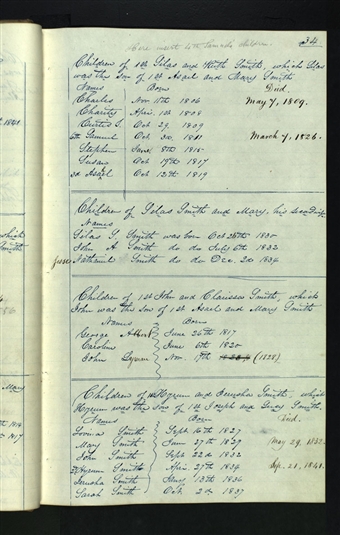 34
Here insert 4th Samuel's Children.
Children of 1st Silas and Ruth Smith, which Silas
was the Son of 1st Asael and Mary Smith
Names Born Died.
Charles Nov 11th 1806 May 7, 1809.
Charity April 1st 1808
Curtis S. Oct 29. 1809
6th Samuel Oct 3d. 1811 March 7, 1826.
Stephen June 8th 1815
Susan Oct 19th 1817
3d Asael Oct 12th 1819
Children of Silas Smith and Mary, his second wife
Names
Silas S. Smith was born Oct 26th 1830
John A Smith do do July 6th 1832
Jesse Nathaniel Smith do do Dec. 2d 1834
Children of 1st John and Clarissa Smith, which
John was the Son of 1st Asael and Mary Smith
Names Born
George Albert June 26th 1817
Caroline June 6th 1820
John Lyman Nov. 17th (1828)
Children of Hyrum and Jerusha Smith, which
Hyrum was the Son of 1st Joseph and Lucy Smith,
Names Born Died.
Lovina Smith Sept. 16th 1827
Mary Smith June 27th 1829 May 29, 1832
John Smith Sept. 22d 1832
2d Hyrum Smith April 27th 1834 Sep. 21, 1841.
Jerusha Smith Jany. 13th 1836
Sarah Smith Oct. 2d 1837
which
Smith
Mary
1814
1817